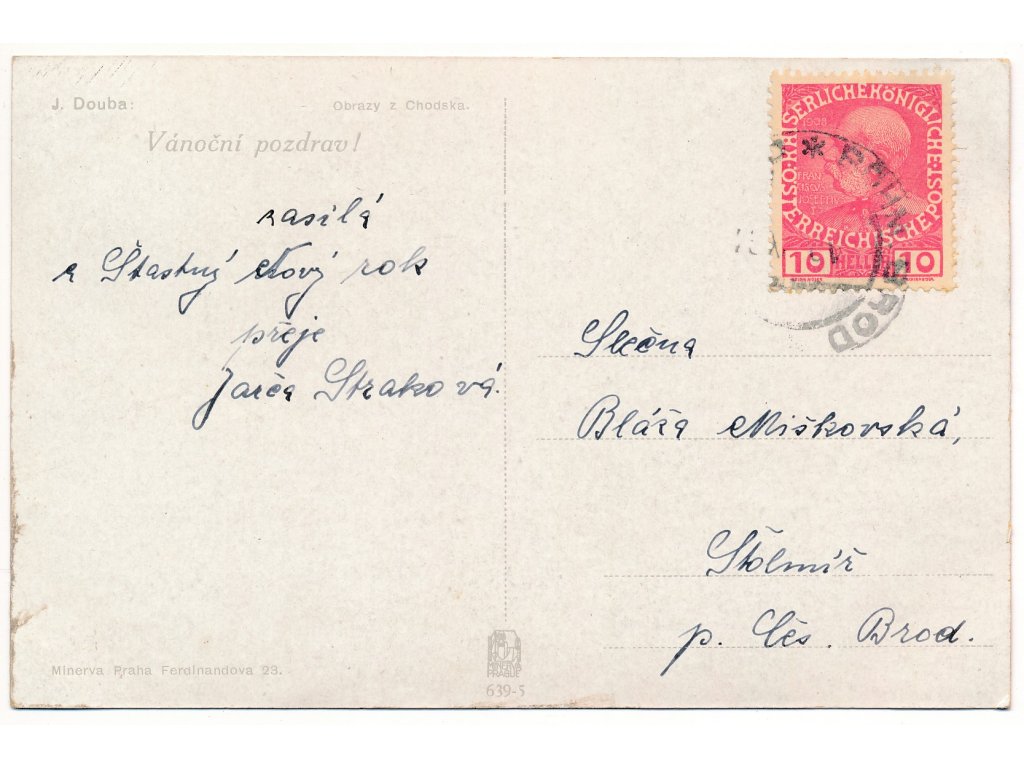 J. Douba:
Obrazy z Chodska.
Vánoční pozdrav!
zasílá
a Šťastný Nový rok
přeje
Jarča Straková.
ÖSTERREICHISCHE POST KAISERLICHE KÖNIGLICHE
1908
10 HELLER 10
BROD
Slečna
Bláža Miškovská,
Štolmíř
p. Čes. Brod.
Minerva Praha Ferdinandova 23.
MINERVA
PRAGUE
639-5